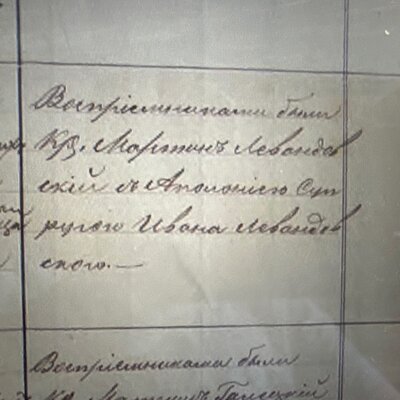 Воспріемниками были
Кр. Мартинъ Левандов
скій съ Аполоніею суп
ругою Ивана Левандов
скаго.—
Воспріемниками были
Кр. Мартинъ